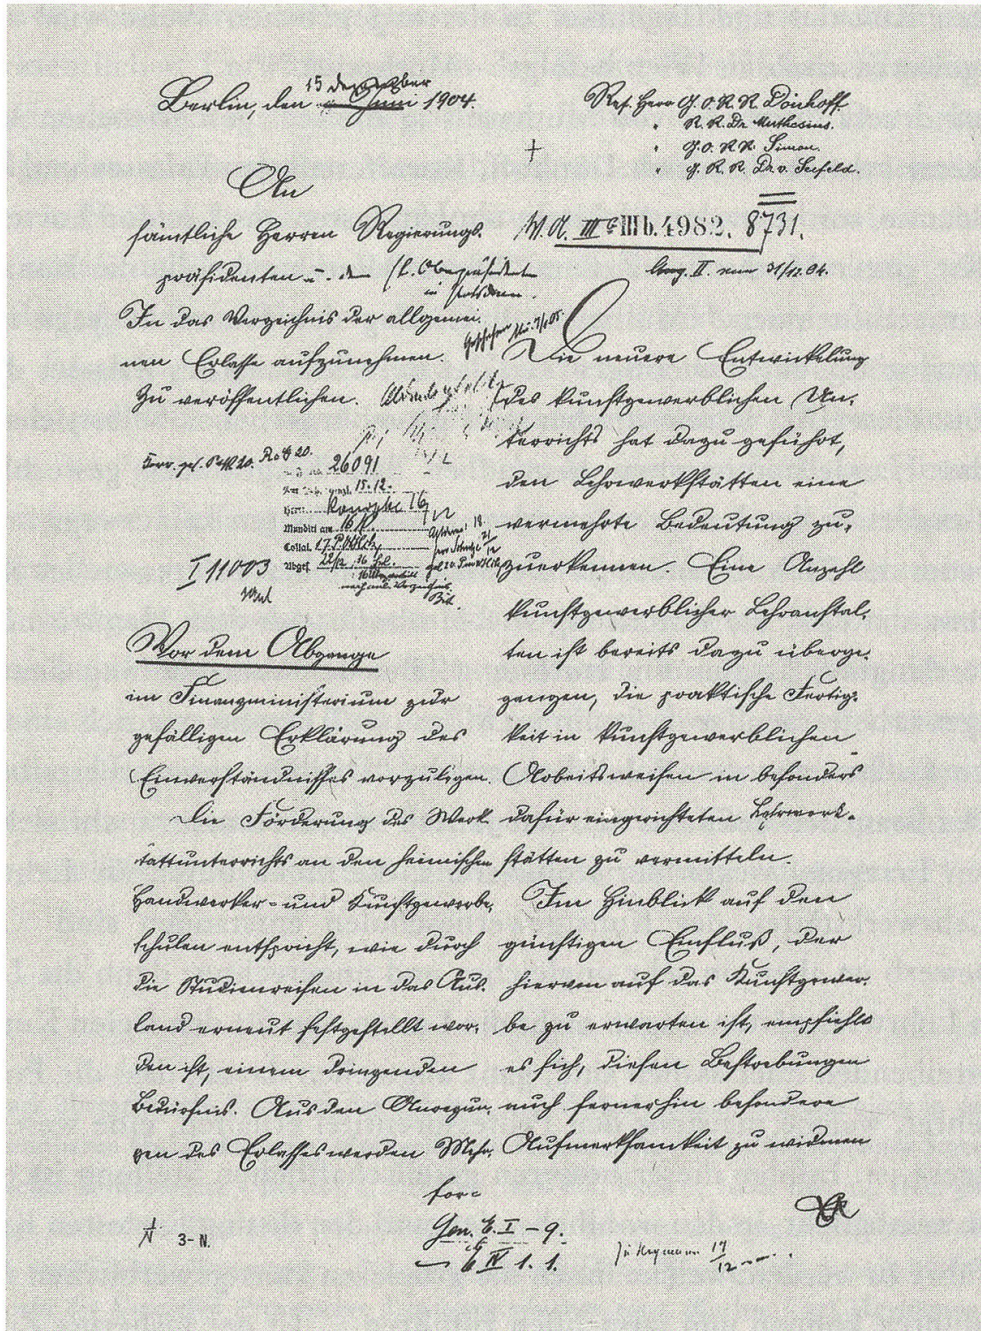 Berlin, den 15 Dezember 1904.
Ref. Herr G. O. R. R. Dönhoff
" R. R. Dr. Muthesius.
" G. O. R. R. Simon.
" G. R. R. Dr. v. Seefeld.
An
sämtliche Herren Regierungs-
präsidenten u. den H. Oberpräsidenten
in Potsdam.
In das Verzeichnis der allgemei-
nen Erlasse aufzunehmen.
Zu veröffentlichen.
26091
15.12.
Mundirt am
Collat.
Abges.
I 11003
Vor dem Abgange
im Finanzministerium zur
gefälligen Erklärung des
Einverständnisses vorzulegen.
Die Förderung des Werk-
stattunterrichts an den heimischen
Handwerker- und Kunstgewerbe-
schulen entspricht, wie durch
die Studienreisen in das Aus-
land erneut festgestellt wor-
den ist, einem dringenden
Bedürfnis. Aus den Anregun-
gen des Erlasses werden Mehr-
for-
III b. 4982. 8731.
Ang. II. vom 31/12.04.
Die neuere Entwickelung
des kunstgewerblichen Un-
terrichts hat dazu geführt,
den Lehrwerkstätten eine
vermehrte Bedeutung zu-
zuerkennen. Eine Anzahl
kunstgewerblicher Lehranstal-
ten ist bereits dazu überge-
gangen, die praktische Fertig-
keit in kunstgewerblichen
Arbeitsweisen in besonders
dafür eingerichteten Lehrwerk-
stätten zu vermitteln.
Im Hinblick auf den
günstigen Einfluß, der
hiervon auf das Kunstgewer-
be zu erwarten ist, empfiehlt
es sich, diesen Bestrebungen
auch fernerhin besondere
Aufmerksamkeit zu widmen
3- N.
Gen. E. I - 9.
IV 1. 1.